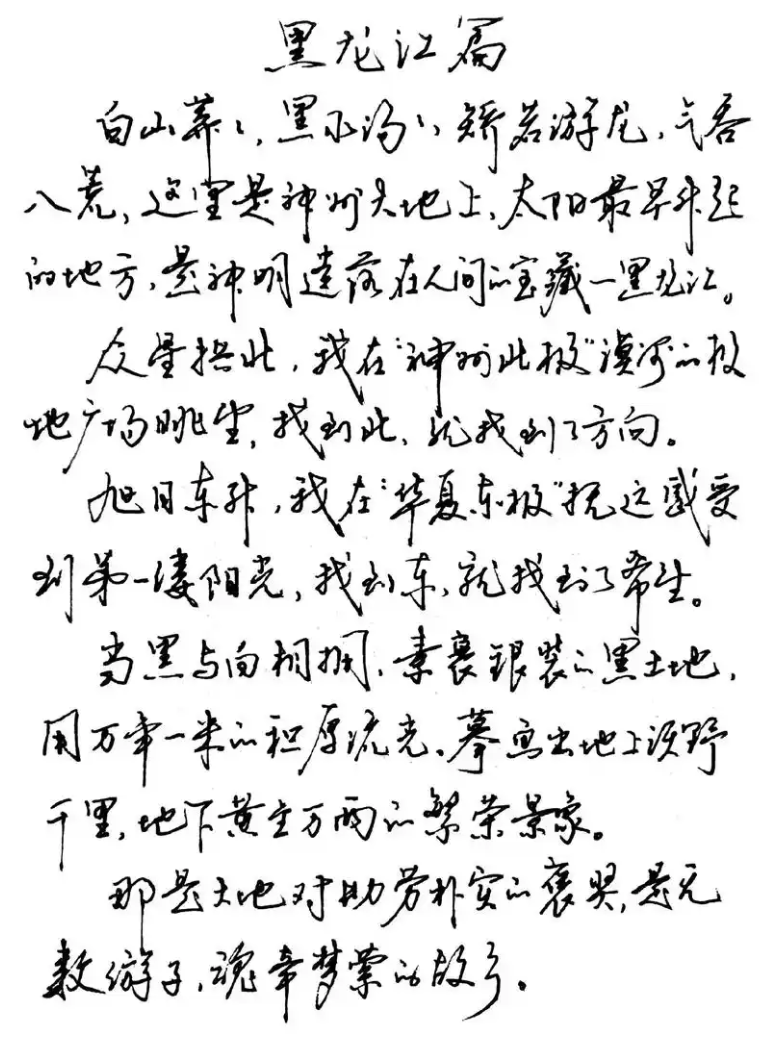 黑龙江篇
白山莽莽,黑水汤汤,矫若游龙,气吞
八荒,这里是神州大地上,太阳最早升起
的地方,是神明遗落在人间的宝藏—黑龙江。
众星拱北,我在“神州北极”漠河的极
地广场眺望,找到北,就找到了方向。
旭日东升,我在“华夏东极”抚远感受
到第一缕阳光,找到东,就找到了希望。
当黑与白相拥,素裹银装的黑土地,
用万年一米的积厚流光,摹写出地上沃野
千里,地下黄金万两的繁荣景象。
那是土地对勤劳朴实的褒奖,是无
数游子,魂牵梦萦的故乡。